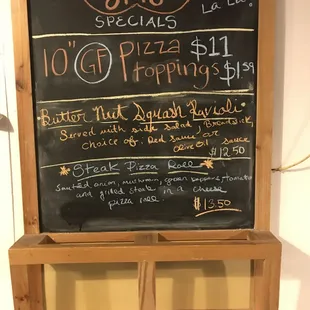 La La!
SPECIALS
10" GF Pizza $11
toppings $1.59
Butter Nut Squash Ravioli
Served with side salad, Breadstick
choice of: Red Sauce or
olive oil sauce
$12.50
Steak Pizza Roll
Sauteed onion, mushroom, green peppers, tomato
and grilled steak in a cheese
pizza roll
$13.50